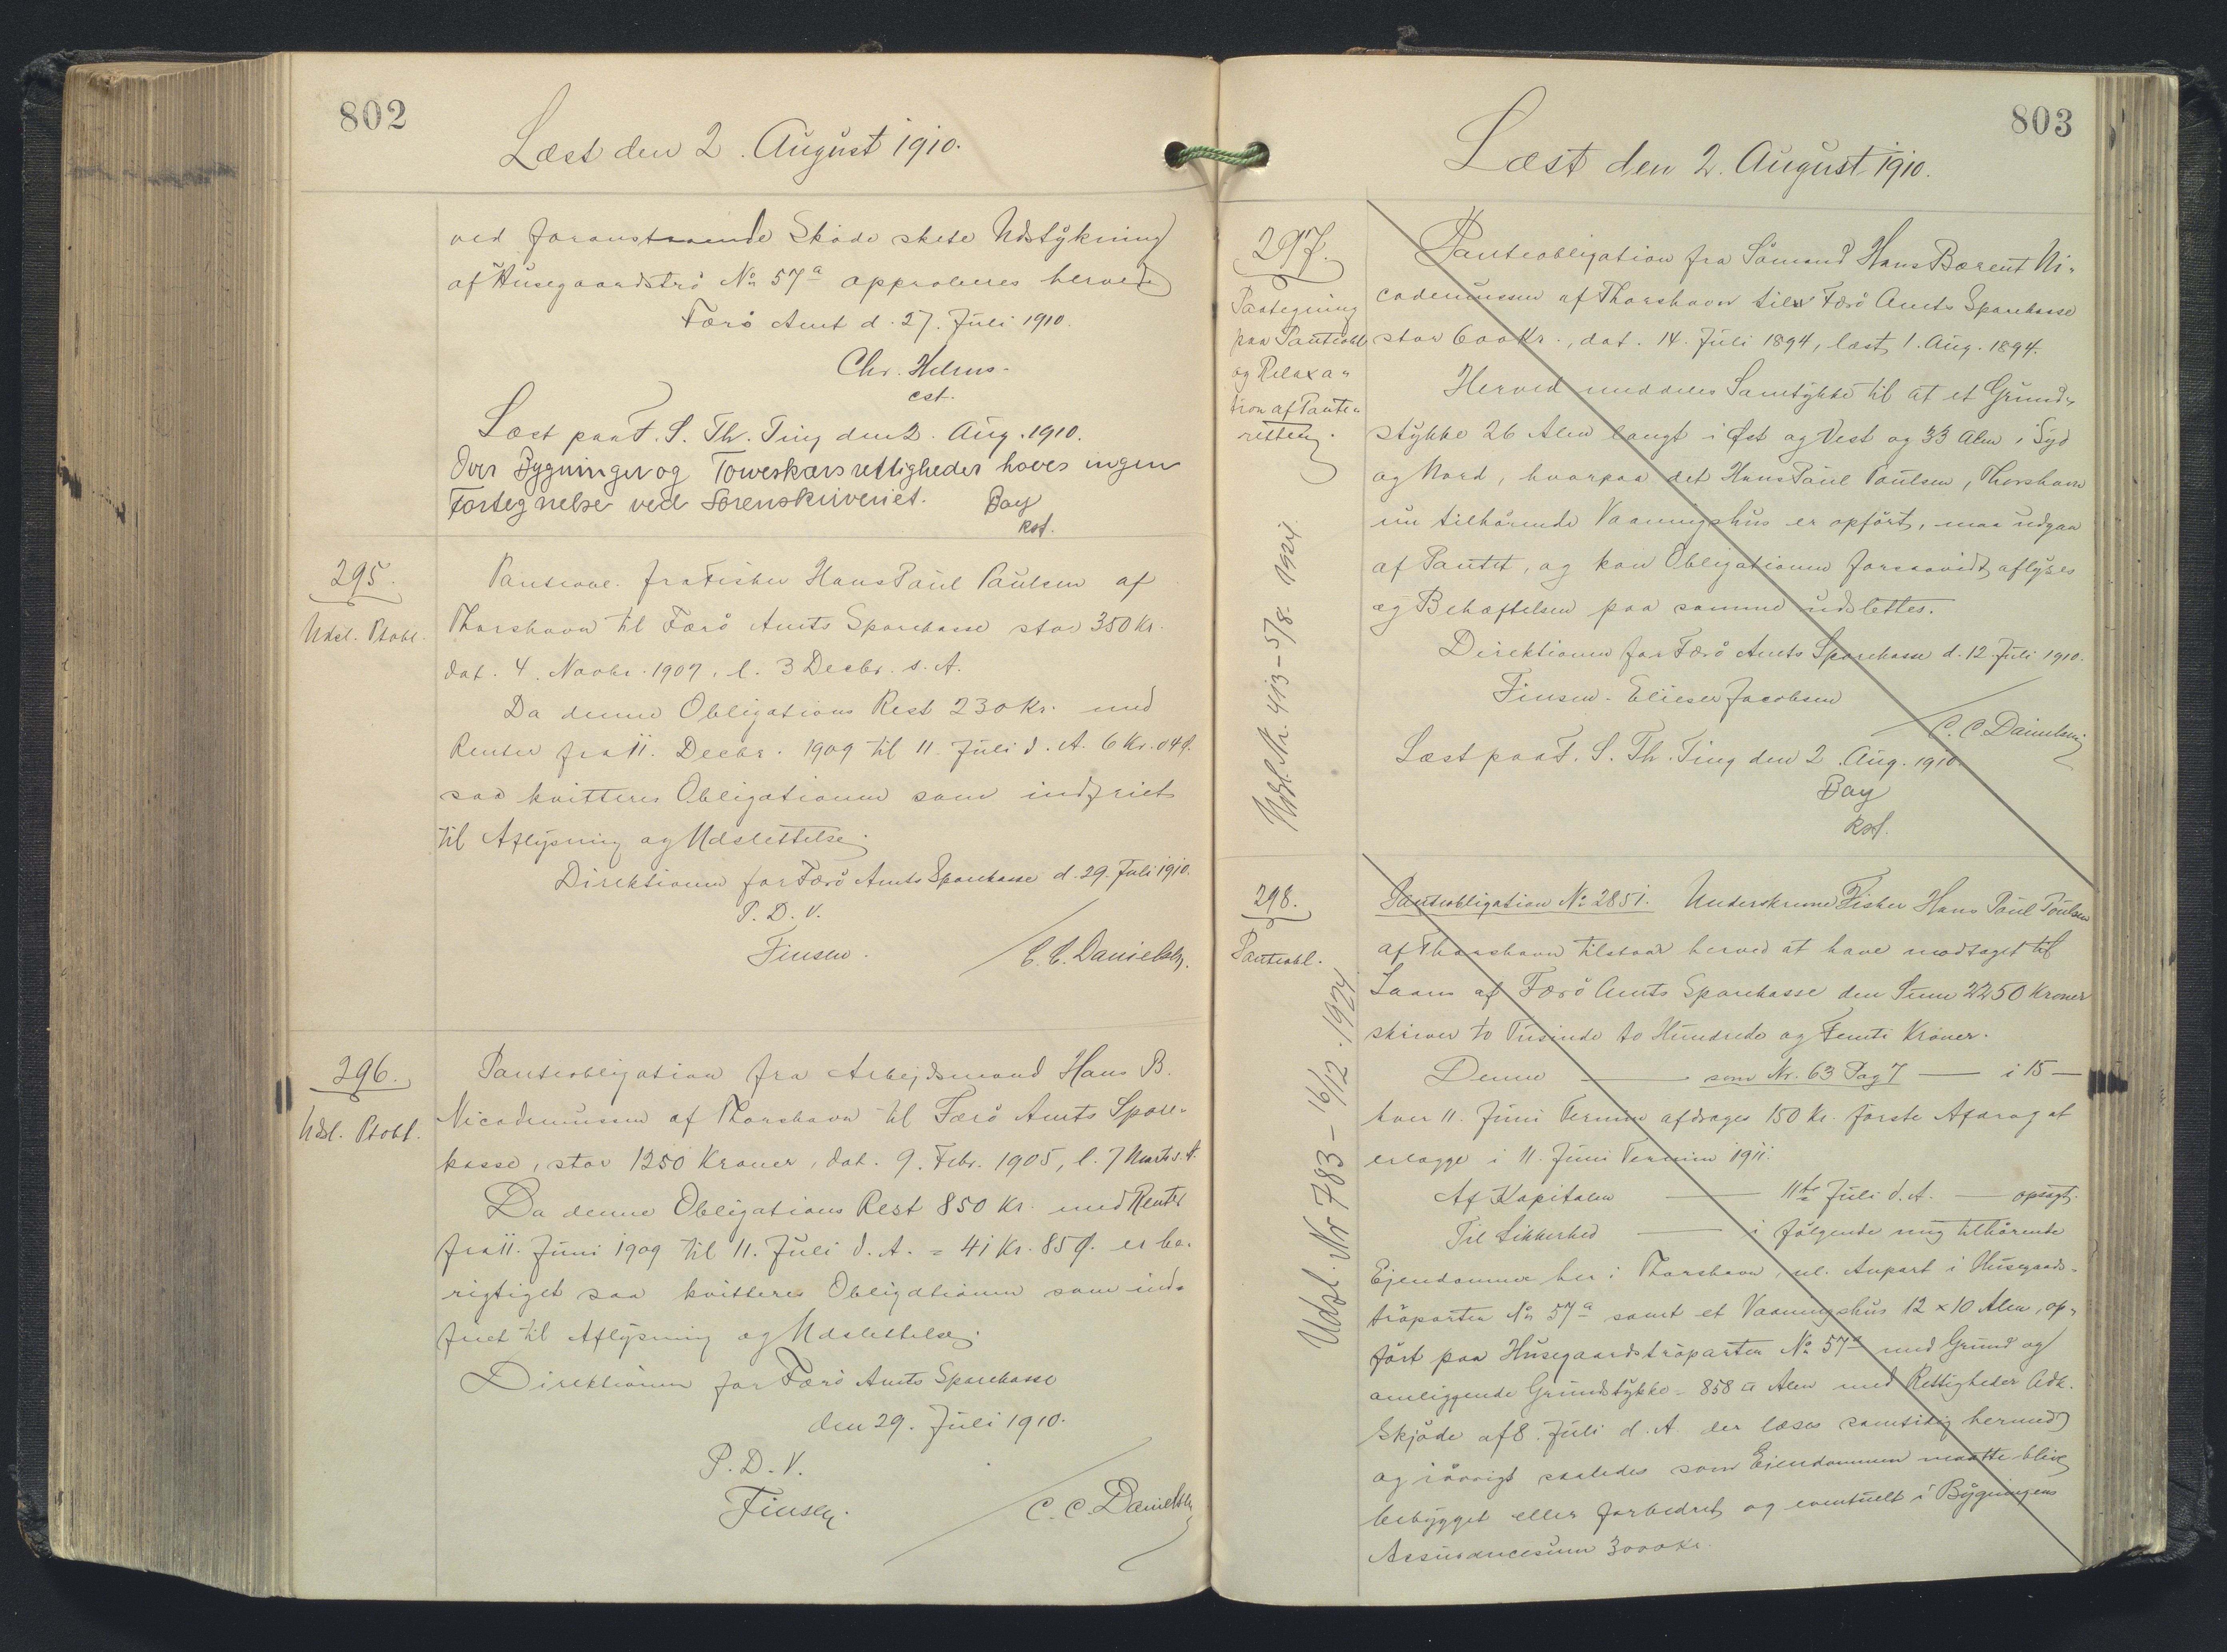 802
Læst den 2. August 1910.
ved foranstaaende Skøde skete Udstykning
af Husegaardstrø No 57a approberes herved
Færø Amt d. 27. Juli 1910.
Chr. Helms.
cst.
Læst paa F. S. Th. Ting den 2. Aug. 1910.
Over Bygninger og Torveskærsrettigheder haves ingen
Fortegnelse ved Sorenskriveriet. Bay
kst.
295.
Udsl. Ptobl.
Panteobl. fra Fisker Hans Paul Paulsen af
Thorshavn til Færø Amts Sparekasse stor 350 Kr.
dat. 4. Novbr. 1907, l. 3 Decbr. s. A.
Da denne Obligations Rest 230 Kr. med
Renter fra 11. Decbr. 1909 til 11. Juli d. A. 6 Kr. 04 Ø.
saa kvitteres Obligationen som indfriet
til Aflysning og Udslettelse.
Direktionen for Færø Amts Sparekasse d. 29. Juli 1910.
P. D. V.
Finsen.
C. C. Danielsen.
296.
Udsl. Ptobl.
Panteobligation fra Arbejdsmand Hans B.
Nicodemussen af Thorshavn til Færø Amts Spare-
kasse, stor 1250 Kroner, dat. 9. Febr. 1905, l. 7 Marts s. A.
Da denne Obligations Rest 850 Kr. med Renter
fra 11. Juni 1909 til 11. Juli d. A. = 41 Kr. 85 Ø. er be-
rigtiget saa kvitteres Obligationen som ind-
friet til Aflysning og Udslettelse.
Direktionen for Færø Amts Sparekasse
den 29. Juli 1910.
P. D. V.
Finsen.
C. C. Danielsen
803
Læst den 2. August 1910.
297.
Paategning
paa Panteobl.
og Relaxa-
tion af Pante-
retten.
Udsl. Nr. 413 - 5/8 1924.
Panteobligation fra Sømand Hans Barent Ni-
codemussen af Thorshavn til Færø Amts Sparekasse
stor 600 Kr., dat. 14. Juli 1894, læst 1. Aug. 1894.
Herved meddeles Samtykke til at et Grund-
stykke 26 Alen langt i Øst og Vest og 33 Alen i Syd
og Nord, hvorpaa det Hans Paul Poulsen, Thorshavn
nu tilhørende Vaaningshus er opført, maa udgaa
af Pantet, og kan Obligationen forsaavidt aflyses
og Behæftelsen paa samme udslettes.
Direktionen for Færø Amts Sparekasse d. 12. Juli 1910.
Finsen. Elieser Jacobsen
C. C. Danielsen
Læst paa F. S. Th. Ting den 2. Aug. 1910.
Bay
kst.
298.
Panteobl.
Udsl. Nr 783 - 16/12 . 1924
Panteobligation No 2851. Underskrevne Fisker Hans Paul Poulsen
af Thorshavn tilstaar herved at have modtaget til
Laans af Færø Amts Sparekasse den Sum 2250 Kroner
skriver to Tusinde to Hundrede og Femti Kroner.
Denne — som Nr. 63 Pag 7 — i 15 —
hver 11. Juni Termin afdrages 150 Kr. første Afdrag at
erlægge i 11. Juni Termin 1911.
Af Kapitalen — 11te Juli d. A. — opsagt.
Til Sikkerhed — i følgende mig tilhørende
Ejendomme her i Thorshavn, nl. Anpart i Husegaards-
trøparten No 57a samt et Vaaningshus 12 x 10 Alen, op-
ført paa Husegaardstrøparten No 57a med Grund og
omliggende Grundstykke = 858 □ Alen med Rettigheder Adk.
Skjøde af 8. Juli d. A. der læses samtidig hermed
og iøvrigt saaledes som Ejendommen maatte blive
bebygget eller forbedret og eventuelt i Bygningens
Assurancesum 3000 Kr.